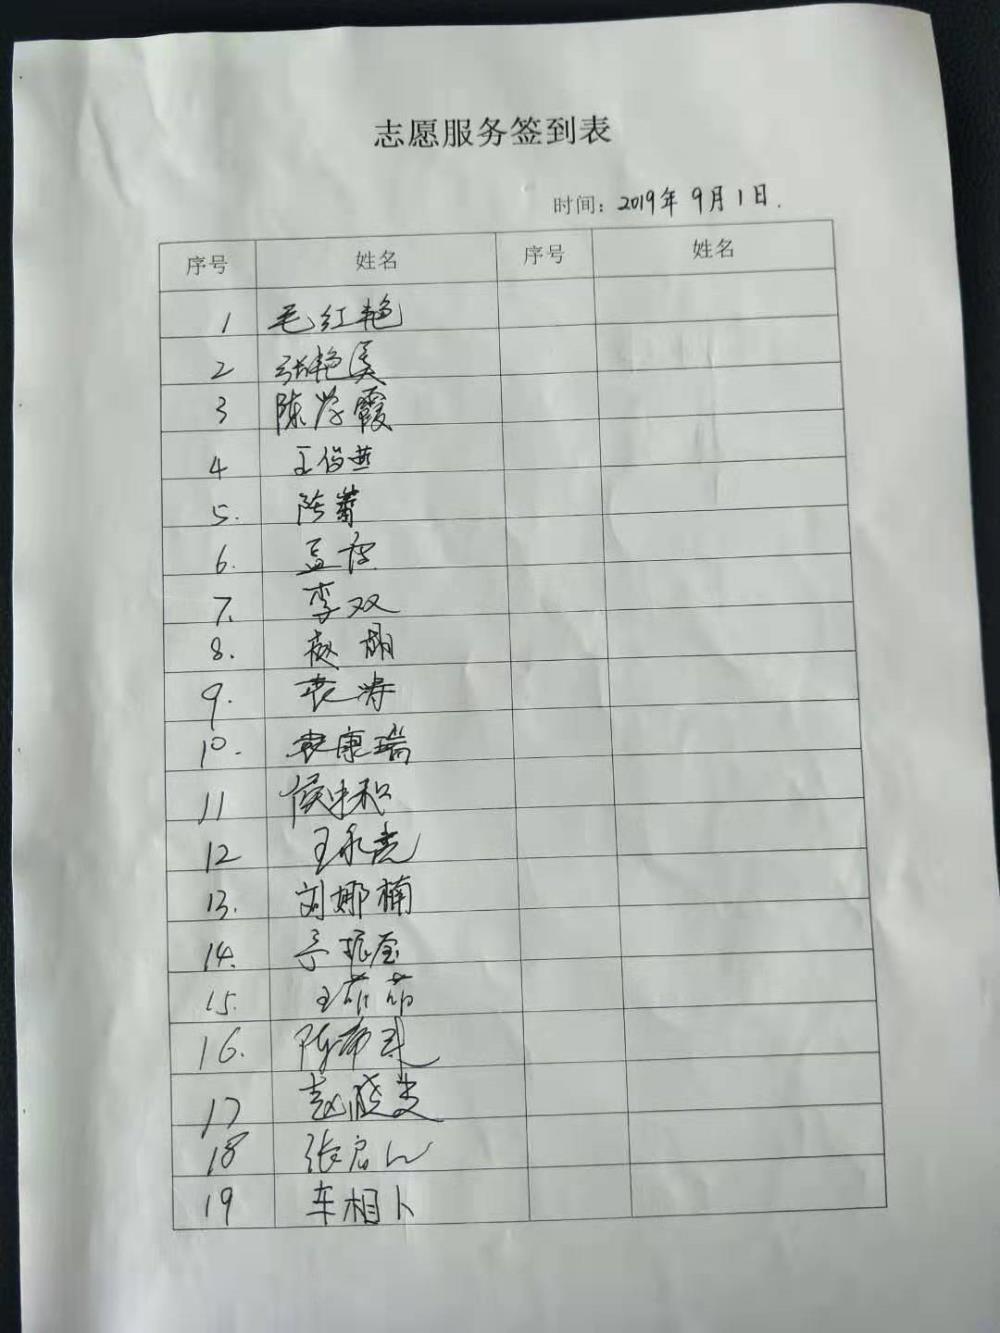 志愿服务签到表
时间：2019年9月1日.
序号 姓名 序号 姓名
1 毛红艳
2 张艳
3 陈学霞
4 王俊燕
5. 陈蕾
6. 孟
7. 李双
8. 赵娟
9. 袁涛
10. 袁康瑞
11 侯中和
12 王永亮
13. 刘娜楠
14.
15. 王菲菲
16. 陈希
17 赵晓
18 张启
19 车相卜